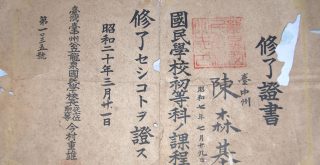 修了證書
臺中州
陳森基
昭和七年七月十九日
國民學校初等科ノ課程
修了セシコトヲ證ス
昭和二十年三月廿一日
臺灣臺中州立龍泉國民學校長
今村重雄
第一〇三五號